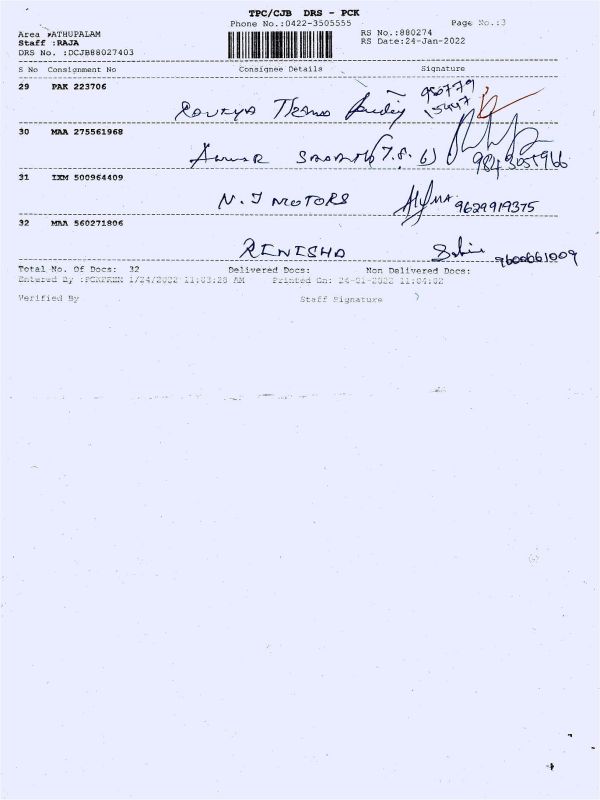 TPC/CJB DRS - PCK
Phone No.:0422-3505555 Page No.:3
Area :ATHUPALAM RS No.:880274
Staff :RAJA RS Date:24-Jan-2022
DRS No. :DCJB88027403
S No Consignment No Consignee Details Signature
29 PAK 223706
98779
15447
30 MAA 275561968
(T.S. 6) 9843055966
31 IXM 500964409
N. J MOTORS 9629919375
32 MAA 560271806
RINISHA 9600661009
Total No. Of Docs: 32 Delivered Docs: Non Delivered Docs:
Entered By :PCKPREM 1/24/2022 11:03:28 AM Printed On: 24-01-2022 11:04:02
Verified By Staff Signature